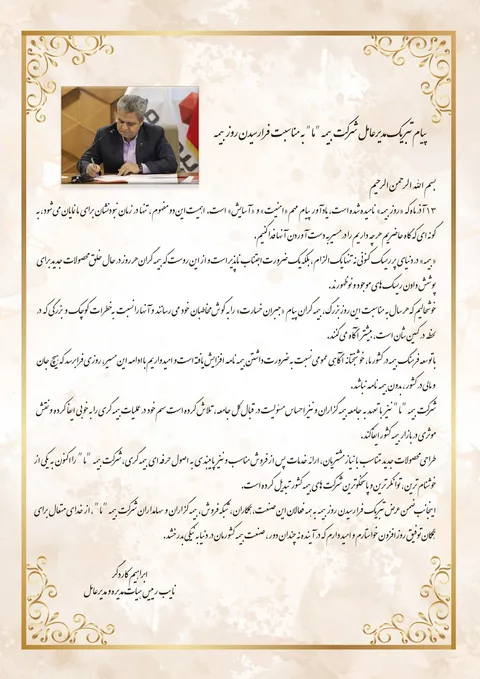 پیام تبریک مدیرعامل شرکت بیمه "ما" به مناسبت فرارسیدن روز بیمه
بسم الله الرحمن الرحیم
۱۳ آذرماه که «روز بیمه» نامیده شده است، یادآور پیام مهم «امنیت» و «آسایش» است. اهمیت این دو مفهوم، تنها در زمان نبودنشان برای ما نمایان می‌شود، به
گونه ای که گاه حاضریم هرچه داریم را در مسیر به دست آوردن آنها فدا کنیم.
«بیمه» در دنیای پر ریسک کنونی نه تنها یک الزام، بلکه یک ضرورت اجتناب ناپذیر است و از این روست که بیمه گران هر روز در حال خلق محصولات جدید برای
پوشش دادن ریسک های موجود و نوظهورند.
خوشحالیم که هر سال به مناسبت این روز بزرگ، بیمه گران پیام «جبران خسارت» را به گوش مخاطبان خود می رسانند و آنها را نسبت به خطرات کوچک و بزرگی که در
لحظه در کمین شان است، بیشتر آگاه می کنند.
با توسعه فرهنگ بیمه در کشور ما، خوشبختانه آگاهی عمومی نسبت به ضرورت داشتن بیمه نامه افزایش یافته است و امیدواریم با ادامه این مسیر، روزی فرا برسد که هیچ جان
و مالی در کشور، بدون بیمه نامه نباشد.
شرکت بیمه "ما" نیز با تعهد به جامعه بیمه گزاران و نیز احساس مسئولیت در قبال کل جامعه، تلاش کرده است سهم خود در عملیات بیمه گری را به خوبی ایفا کرده و نقش
موثری در بازار بیمه کشور ایفا کند.
طراحی محصولات جدید متناسب با نیاز مشتریان، ارائه خدمات پس از فروش مناسب و نیز پایبندی به اصول حرفه ای بیمه گری، شرکت بیمه "ما" را اکنون به یکی از
خوشنام ترین، توانگرترین و پاسخگوترین شرکت های بیمه کشور تبدیل کرده است.
اینجانب ضمن عرض تبریک فرارسیدن روز بیمه به همه فعالان این صنعت، همکاران، شبکه فروش، بیمه گزاران و سهامداران شرکت بیمه "ما"، از خدای متعال برای
همگان توفیق روزافزون خواستارم و امید دارم که در آینده نه چندان دور، صنعت بیمه کشورمان در دنیا به نیکی بدرخشد.
ابراهیم کاردگر
نایب رییس هیات مدیره و مدیرعامل